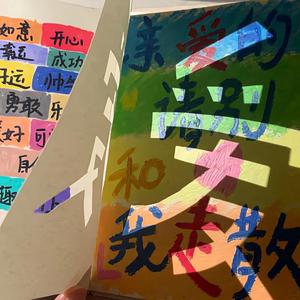 如意 开心
幸运 成功
好运 帅
勇敢 乐
好 可
趣
亲爱的
请别
和
我走散